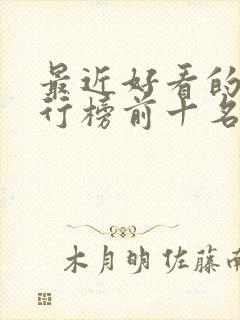 最近好看的
行榜前十名
木月明 佐藤南